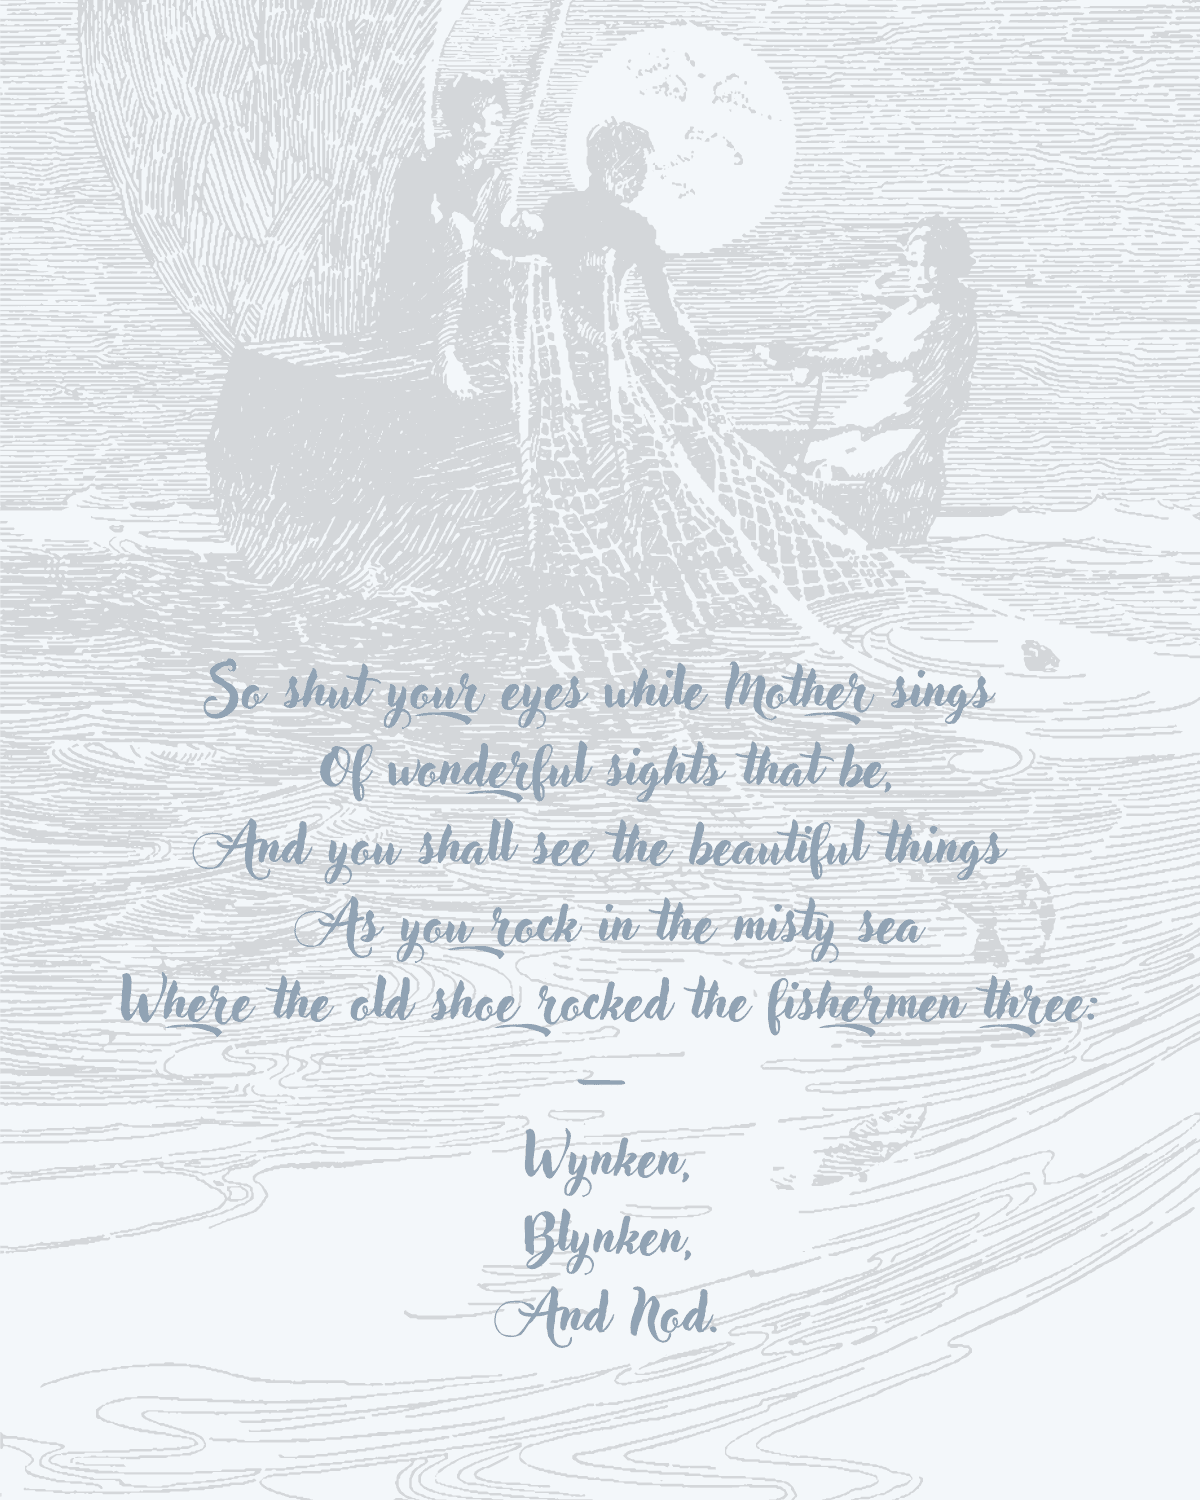 So shut your eyes while Mother sings
Of wonderful sights that be,
And you shall see the beautiful things
As you rock in the misty sea
Where the old shoe rocked the fishermen three:
—
Wynken,
Blynken,
And Nod.